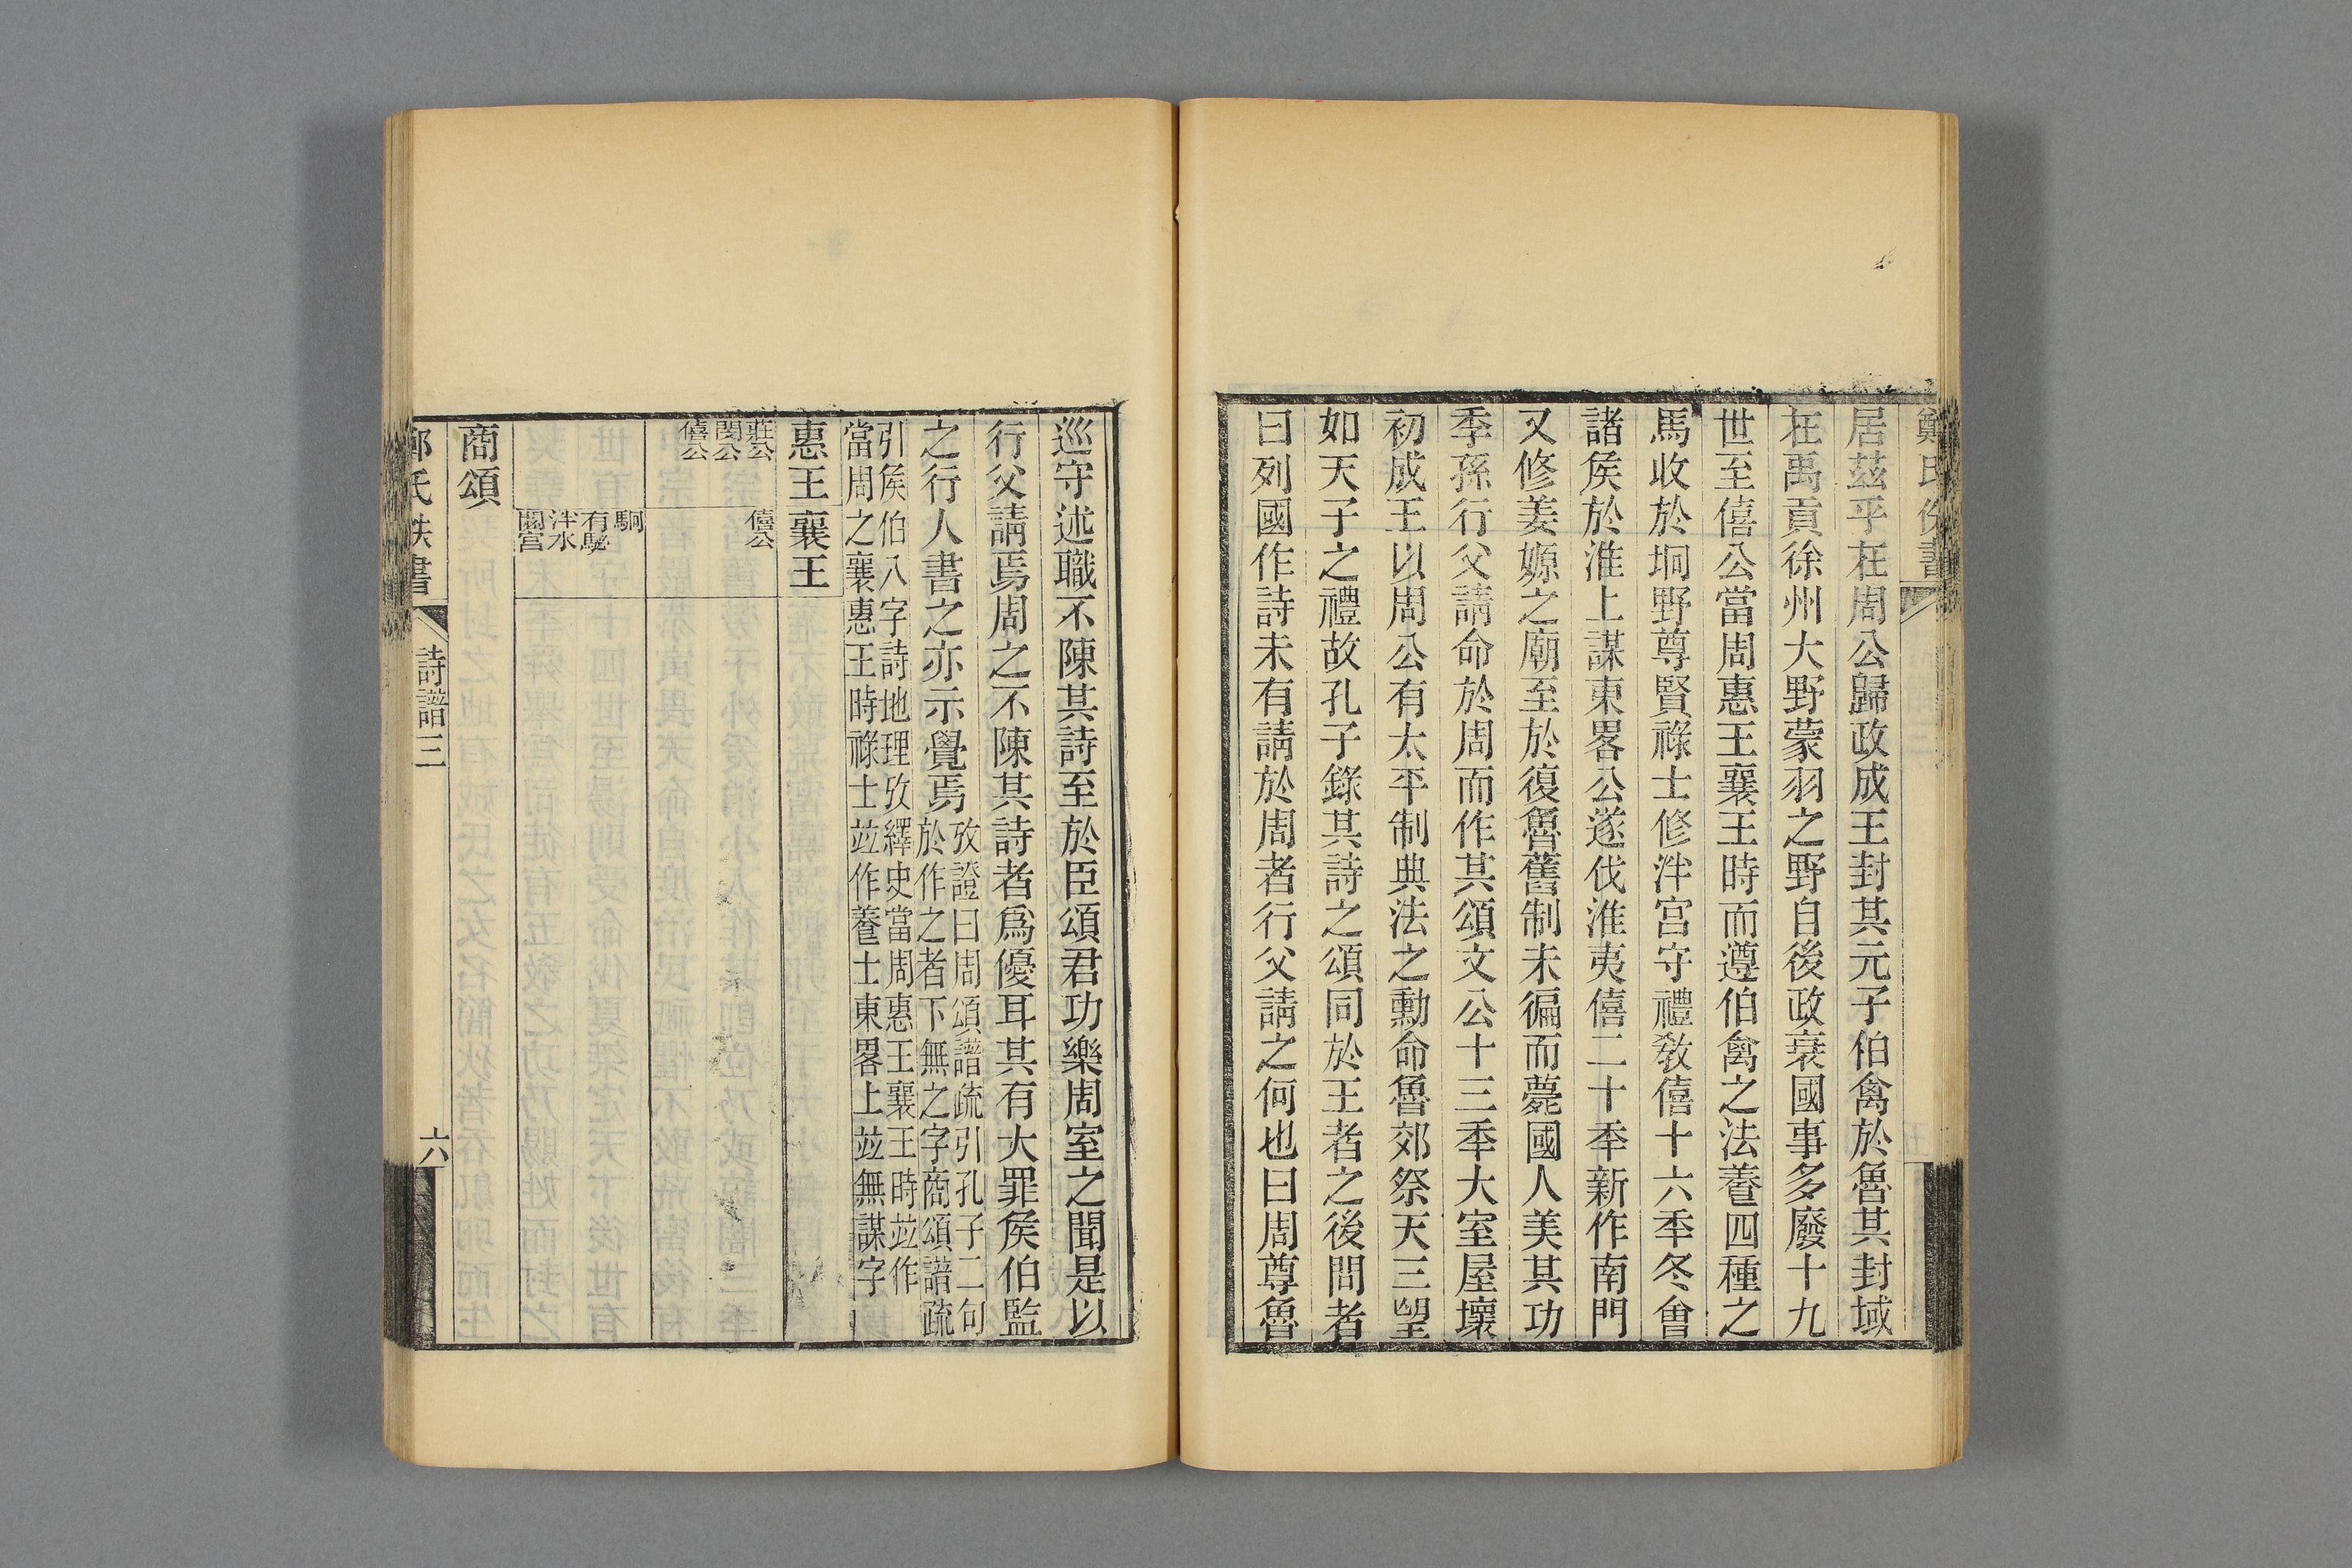 鄭氏佚書
居茲乎在周公歸政成王封其元子伯禽於魯其封域
在禹貢徐州大野蒙羽之野自後政衰國事多廢十九
世至僖公當周惠王襄王時而遵伯禽之法養四種之
馬收於坰野尊賢祿士修泮宫守禮教僖十六秊冬會
諸矦於淮上謀東畧公遂伐淮夷僖二十秊新作南門
又修姜嫄之廟至於復魯舊制未徧而薨國人美其功
季孫行父請命於周而作其頌文公十三秊大室屋壞
初成王以周公有太平制典法之勳命魯郊祭天三望
如天子之禮故孔子錄其詩之頌同於王者之後問者
曰列國作詩未有請於周者行父請之何也曰周尊魯
巡守述職不陳其詩至於臣頌君功樂周室之聞是以
行父請焉周之不陳其詩者爲優耳其有大罪矦伯監
之行人書之亦示覺焉
攷證曰周頌譜疏引孔子二句
於作之者下無之字商頌譜疏
引矦伯八字詩地理攷繹史當周惠王襄王時竝作
當周之襄惠王時祿士竝作養士東畧上竝無謀字
惠王襄王
莊公
閔公
僖公
僖公
駉
有駜
泮水
閟宫
商頌
鄭氏佚書
詩譜三
六